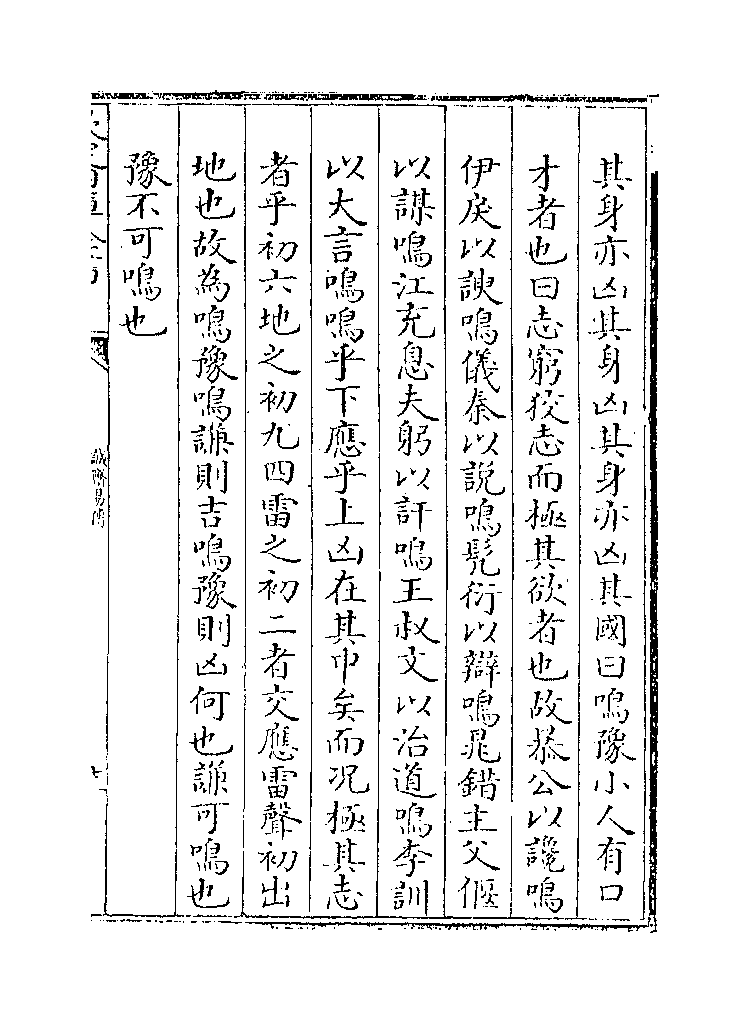 其身亦凶其身凶其身亦凶其國曰鳴豫小人有口
才者也曰志窮狡志而極其欲者也故恭公以讒鳴
伊戾以諛鳴儀秦以說鳴髡衍以辯鳴鼂錯主父偃
以謀鳴江充息夫躬以訐鳴王叔文以治道鳴李訓
以大言鳴鳴乎下應乎上凶在其中矣而况極其志
者乎初六地之初九四雷之初二者交應雷聲初出
地也故為鳴豫鳴謙則吉鳴豫則凶何也謙可鳴也
豫不可鳴也
誠齋易傳